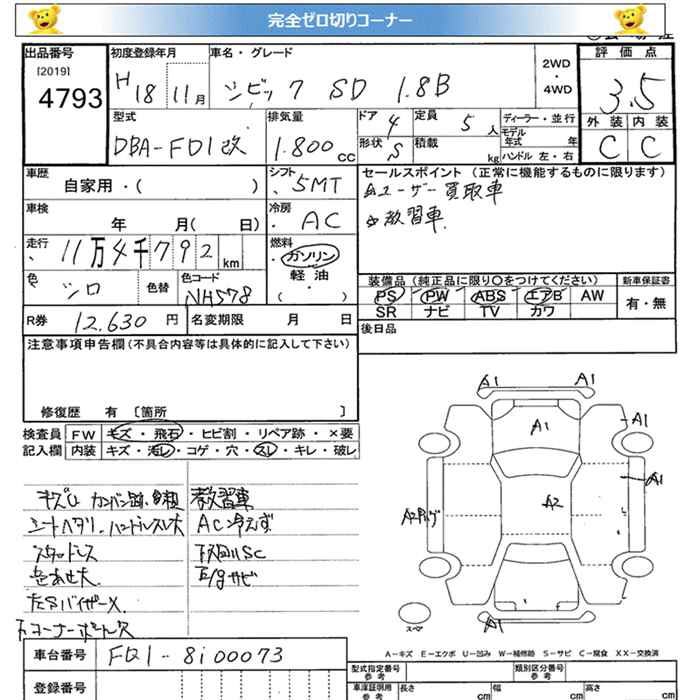 完全ゼロ切りコーナー
出品番号 [2019] 4793
初度登録年月 H18 11月
車名・グレード シビック SD 1.8B
2WD ・ 4WD
評価点 3.5
外装 C 内装 C
型式 DBA-FD1改
排気量 1.800 CC
ドア 4 形状 S
定員 5人 積載 kg
ディーラー・並行
モデル年式 年
ハンドル 左・右
車歴 自家用・( )
シフト 5MT
セールスポイント (正常に機能するものに限ります)
ユーザー買取車
教習車
車検 年 月( 日)
冷房 AC
走行 11万4千792km
燃料 ガソリン・軽油・( )
色 シロ 色替 色コード NH578
装備品 (純正品に限り○をつけてください) 新車保証書
PS PW ABS エアB AW 有・無
SR ナビ TV カワ
R券 12,630円 名変期限 月 日
後日品
注意事項申告欄(不具合内容等は具体的に記入して下さい)
修復歴 有 [箇所 ]
検査員記入欄 FW キズ・飛石・ヒビ割・リペア跡・×要
内装 キズ・汚レ・コゲ・穴・スレ・キレ・破レ
教習車
シートヘタリ、ハンドルスレ大
AC冷えず
スタッドレス
下廻りSC
E/gサビ
A1 A1
A1 A1
A1
A2
A1
A-キズ E-エクボ U-凹み W-補修跡 S-サビ C-腐食 XX-交換済
車台番号 FD1-8100073
登録番号
型式指定番号 参考
類別区分番号 参考
車庫証明用 参考 長さ cm 幅 cm 高さ cm